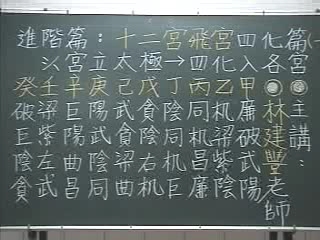 進階篇：十二宮飛宮四化篇(一
以宮立太極→四化入各宮
◎主講：
◎林建豐老師
甲廉破武陽
乙机梁紫陰
丙同机昌廉
丁陰同机巨
戊貪陰右机
己武貪梁曲
庚陽武陰同
辛巨陽曲昌
壬梁紫左武
癸破巨陰貪